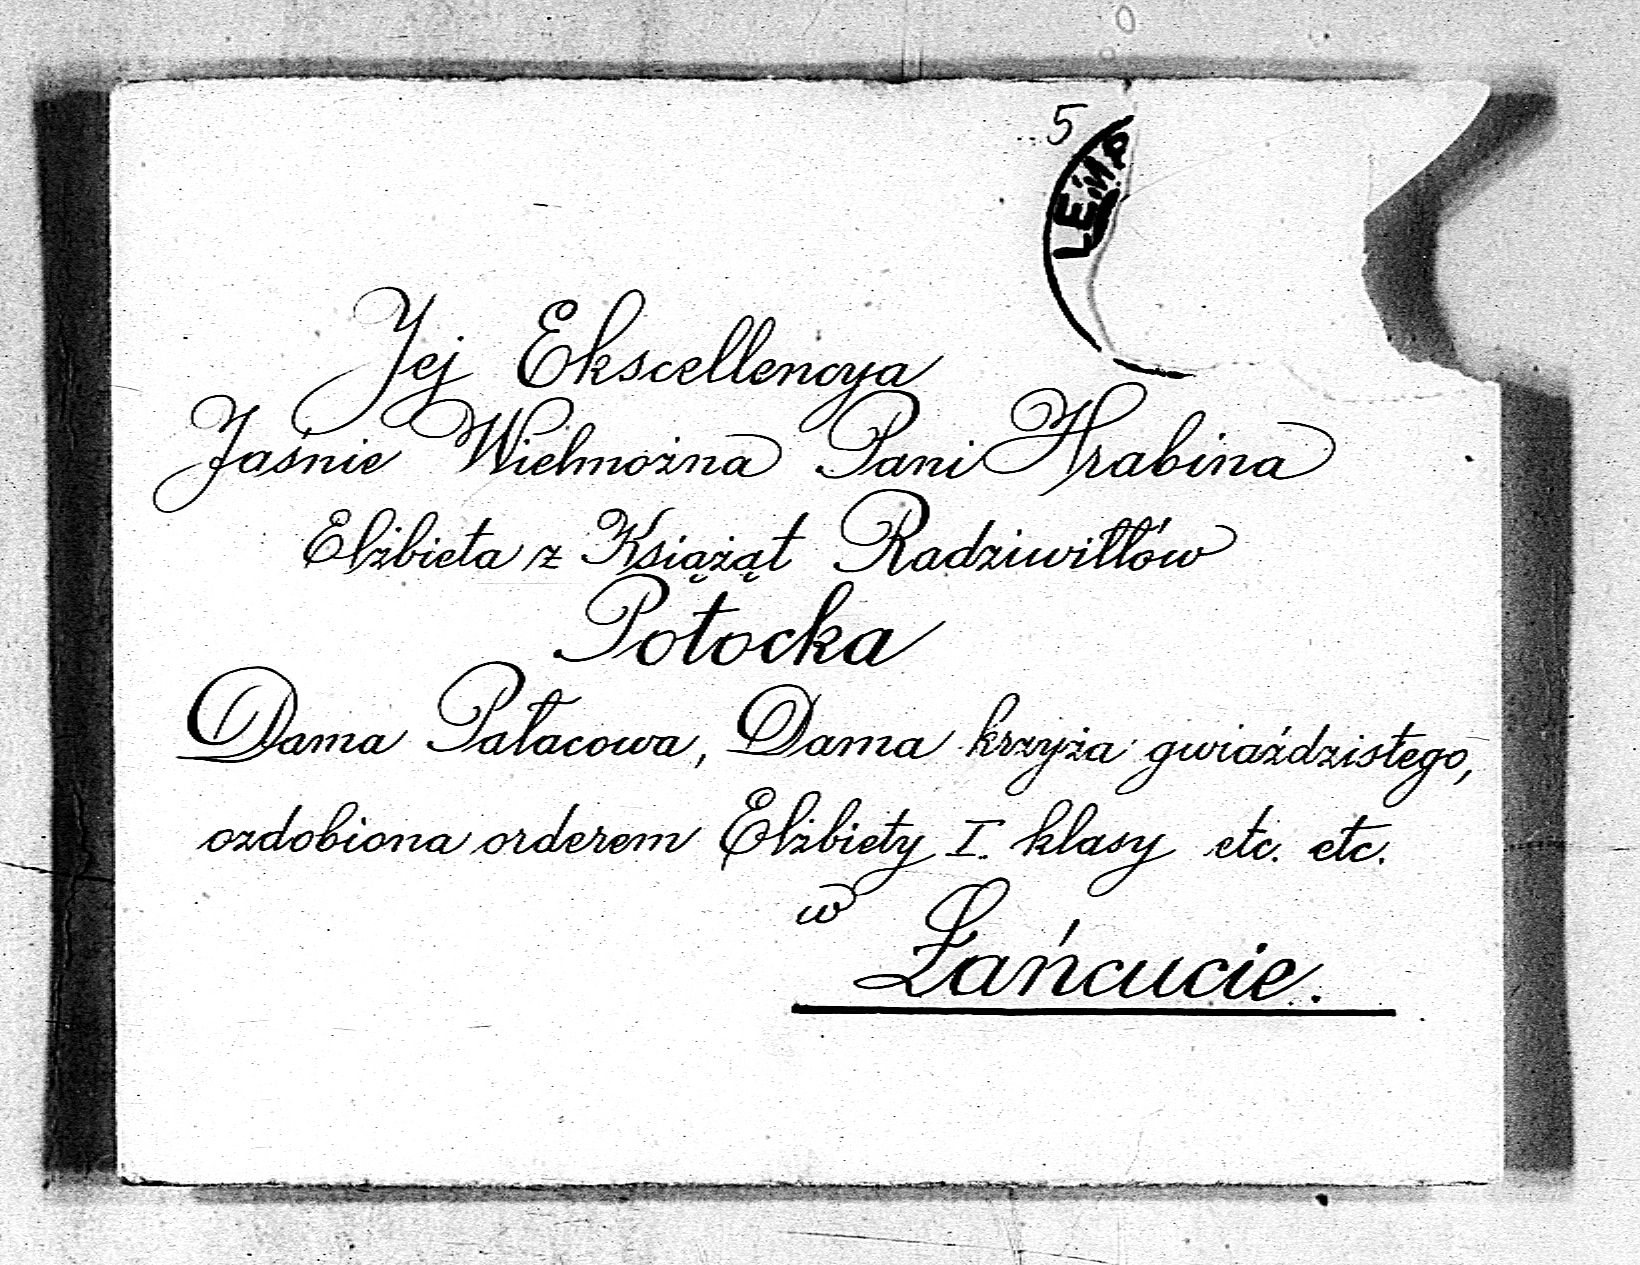 5
LEMB
Jej Ekscellencya
Jaśnie Wielmożna Pani Hrabina
Elżbieta z Książąt Radziwiłłów
Potocka
Dama Pałacowa, Dama krzyża gwiaździstego,
ozdobiona orderem Elżbiety I. klasy etc. etc.
w
Łańcucie.